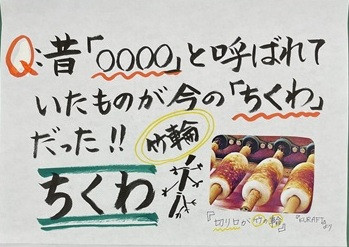 Q:昔「○○○○」と呼ばれて
いたものが今の「ちくわ」
だった!!
竹輪
ちくわ
『切り口が竹の輪』